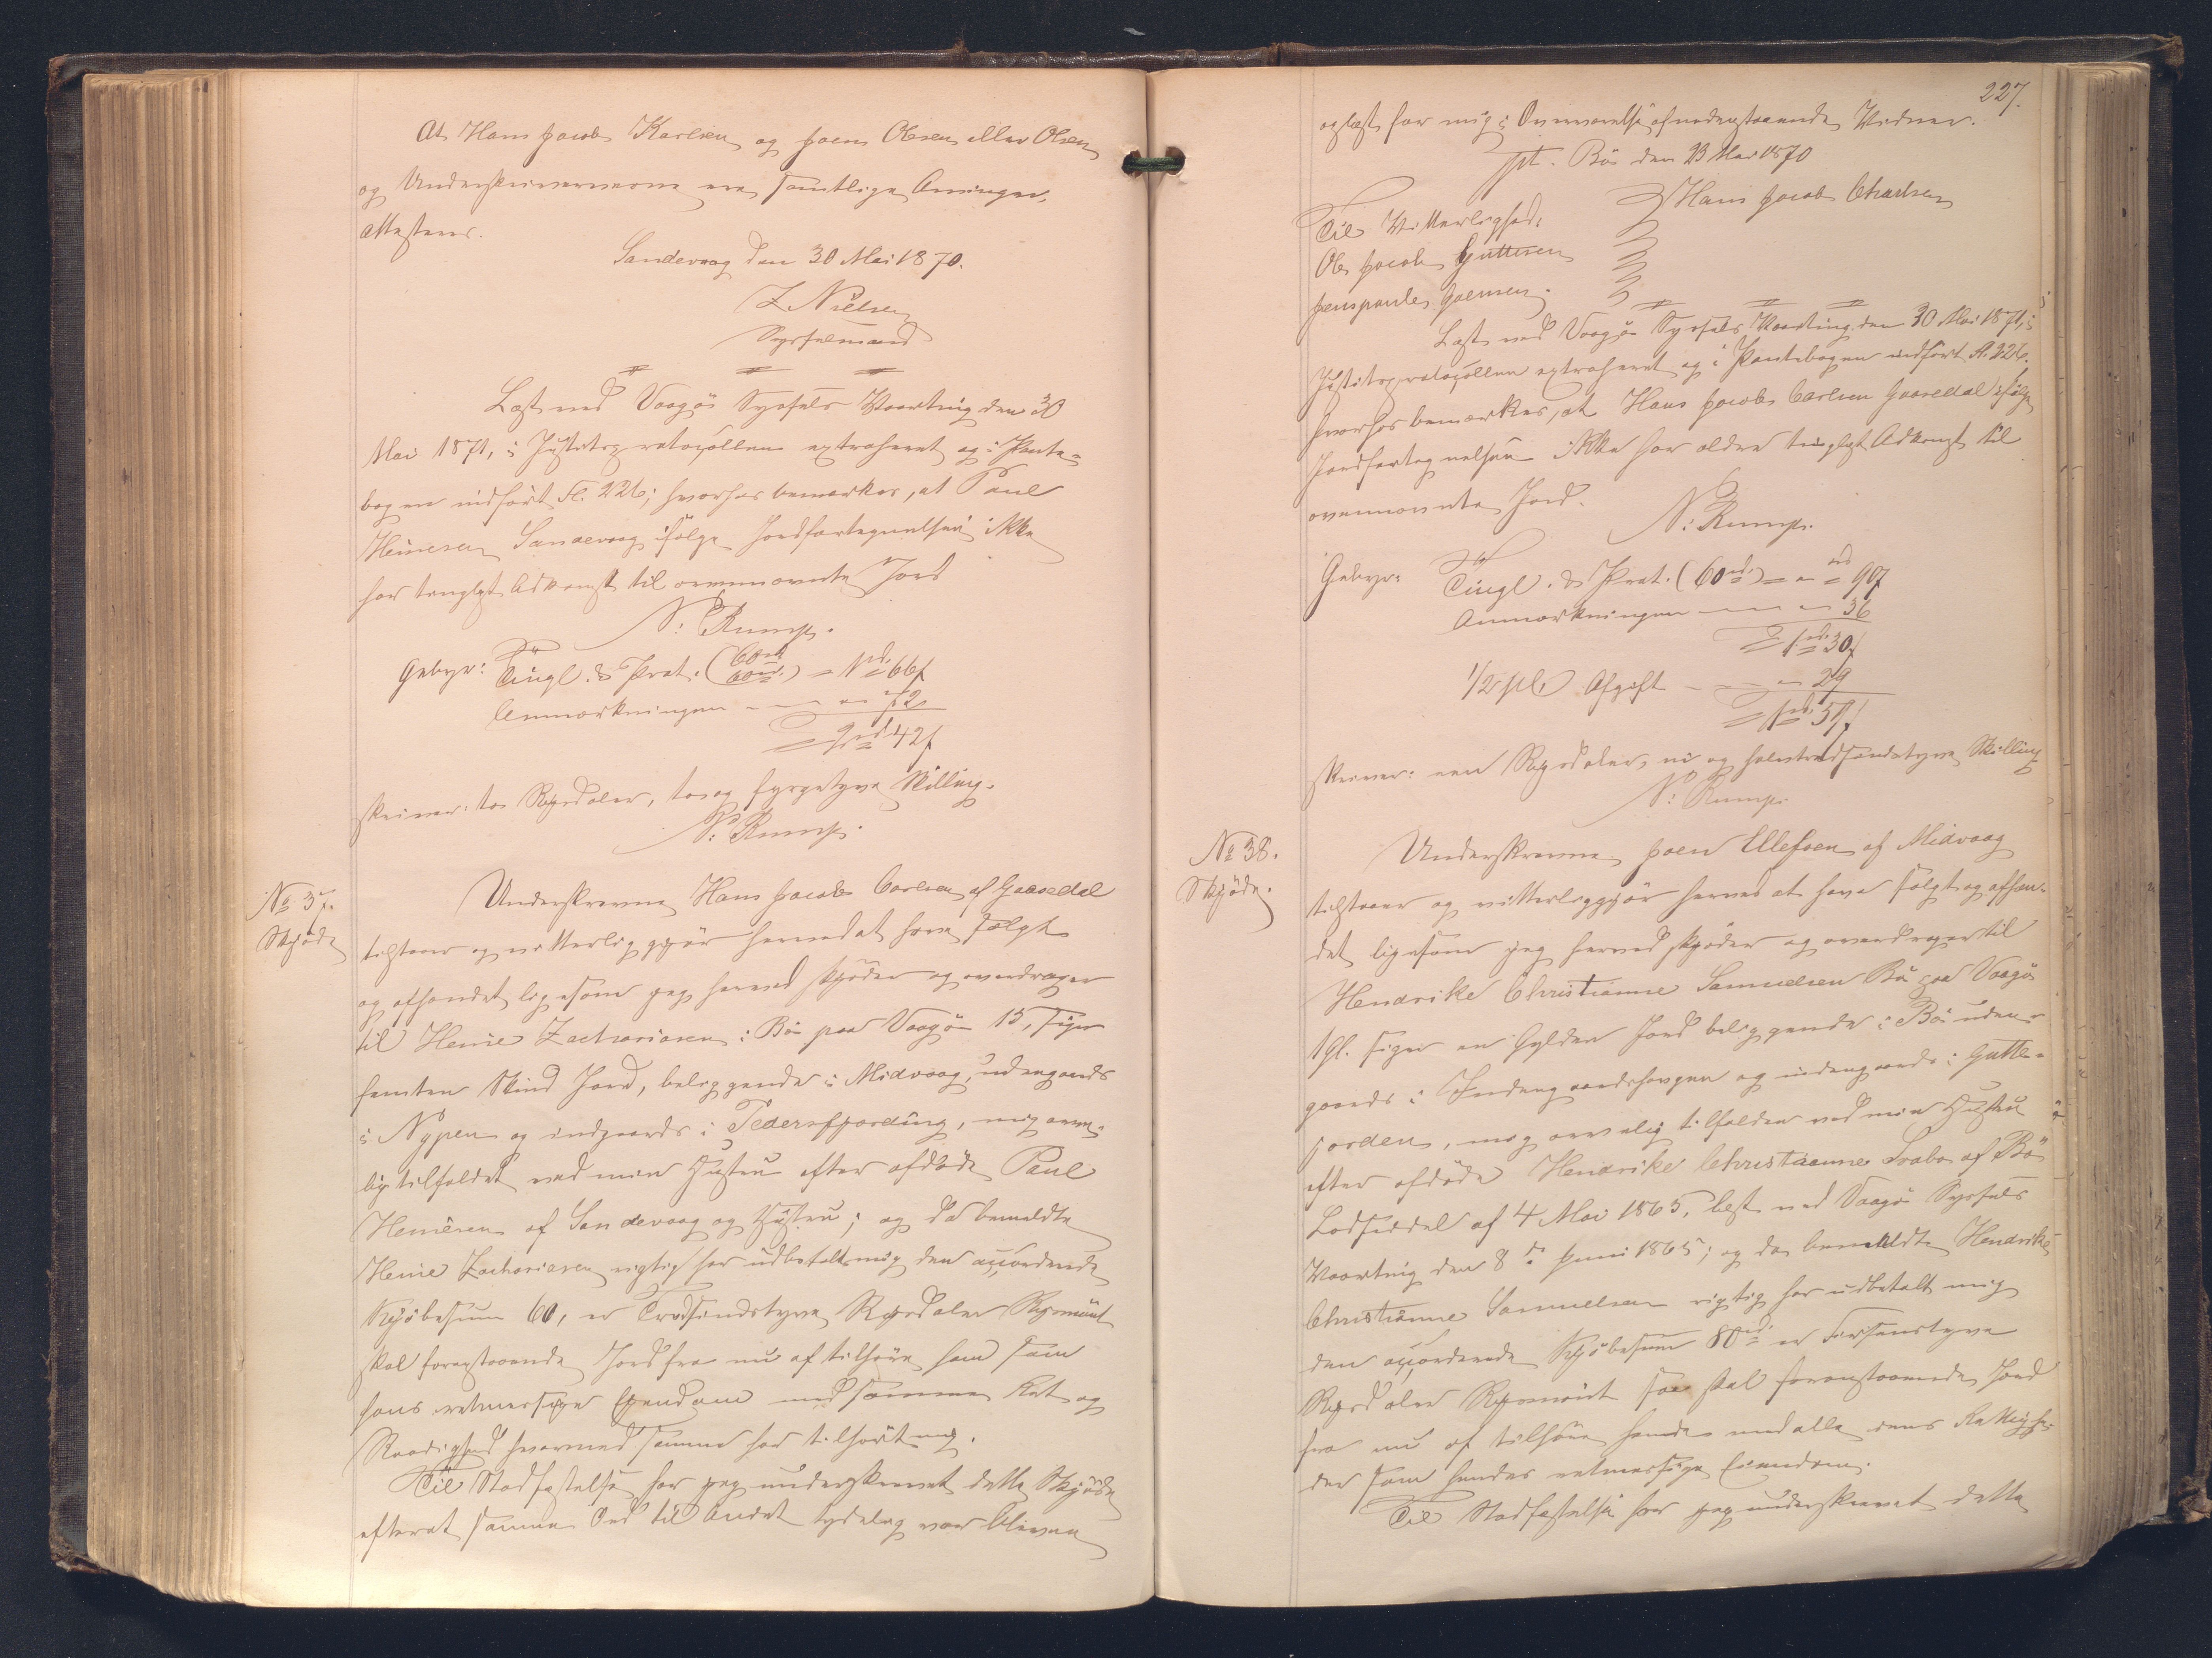 At Hans Jacob Karlsen og Joen Olesen eller Olsen
og Underskriverne ere samtlige Arvinger,
attesteres.
Sandevaag den 30 Mai 1870.
Z Nielsen
Sysselmand
Læst ved Vaagø Syssels Vaarting den 30
Mai 1871, i Justitsprotocollen extraheret og i Pante-
bogen indført Fl. 226; hvorhos bemærkes, at Paul
Heinesen Sandevaag ifølge Jordfortegnelsen ikke
har tinglyst Adkomst til ovennævnte Jord
N: Rump.
Gebyr: Tingl. & Prot. (60rd 60rd) = 1rd 66ſ
Anmærkningen — 72
= 2rd 42ſ
skriver: to Rigsdaler, to og fyrgetyve Skilling.
N: Rump.
No 37.
Skjøde
Underskrevne Hans Jacob Carlsen af Gaasedal
tilstaaer og vitterliggjør hermed at have solgt
og afhændet ligesom jeg hermed skjøder og overdrager
til Heine Zachariasen i Bø paa Vaagø 15, siger
femten Skind Jord, beliggende i Midvaag, udengaards
i Nypen og indgaards i Pedersfjording, mig arve-
lig tilfaldet ved min Hustru efter afdøde Paul
Heinesen af Sandevaag og Hustru; og da bemeldte
Heine Zachariasen rigtig har udbetalt mig den accorderede
Kjøbesum 60, er Tredsindstyve Rigsdaler Rigsmønt
skal foranstaaende Jord fra nu af tilhøre ham som
hans retmæssige Eiendom med samme Ret og
Raadighed hvormed samme har tilhørt mig.
Til Stadfæstelse har jeg underskrevet dette Skjøde
efterat samme Ord til Andet tydelig var bleven
227.
oplæst for mig i Overværelse af nedenstaaende Vidner.
pt. Bø den 23 Mai 1870
Hans Jacob Charlsen
Til Vitterlighed:
Ole Jacob Guttesen
Jenspaule Joensen.
Læst ved Vaagø Syssels Vaarting den 30 Mai 1871, i
Justitsprotocollen extraheret og i Pantebogen indført Fl. 226.
hvorhos bemærkes, at Hans Jacob Carlsen Gaasedal ifølge
Jordfortegnelsen ikke har ældre tinglyst Adkomst til
ovennævnte Jord.
N: Rump.
Gebyr: Tingl. & Prot. (60rd) = 90ſ
Anmærkningen — 36
= 1rd 30ſ
1/2 pCt Afgift — 29
= 1rd 59ſ
skriver: een Rigsdaler, ni og halvtredsindstyve Skilling
N: Rump.
No 38.
Skjøde.
Underskrevne Joen Ellefsen af Midvaag
tilstaaer og vitterliggjør hermed at have solgt og afhæn-
det ligesom jeg hermed skjøder og overdrager til
Hendrike Christianne Samuelsen Bø paa Vaagø
1 Gl. siger en Gylden Jord beliggende i Bø uden-
gaards i Indengaardshaugen og indengaards i Gutte-
jorden, mig arvelig tilfalden ved min Hustru
efter afdøde Hendrike Christianne Svabo af Bø
Lodseddel af 4 Mai 1865, læst ved Vaagø Syssels
Vaarting den 8de Juni 1865; og da bemeldte Hendrike
Christianne Samuelsen rigtig har udbetalt mig
den accorderede Kjøbesum 80rd er Firsindstyve
Rigsdaler Rigsmønt saa skal foranstaaende Jord
fra nu af tilhøre hende med alle dens Rettighe-
der som hendes retmæssige Eiendom.
Til Stadfæstelse har jeg underskrevet dette